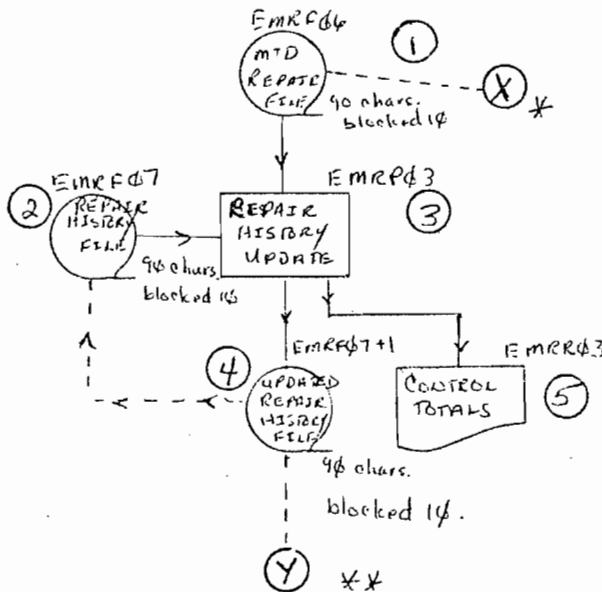 EMRFØ6
①
MTD
REPAIR
FILE
X
*
90 chars.
blocked 1Ø
EMRFØ7
②
REPAIR
HISTORY
FILE
9Ø chars.
blocked 1Ø
EMRPØ3
REPAIR
HISTORY
UPDATE
③
EMRFØ7+1
④
UPDATED
REPAIR
HISTORY
FILE
9Ø chars.
blocked 1Ø.
EMRRØ3
CONTROL
TOTALS
⑤
Y
**